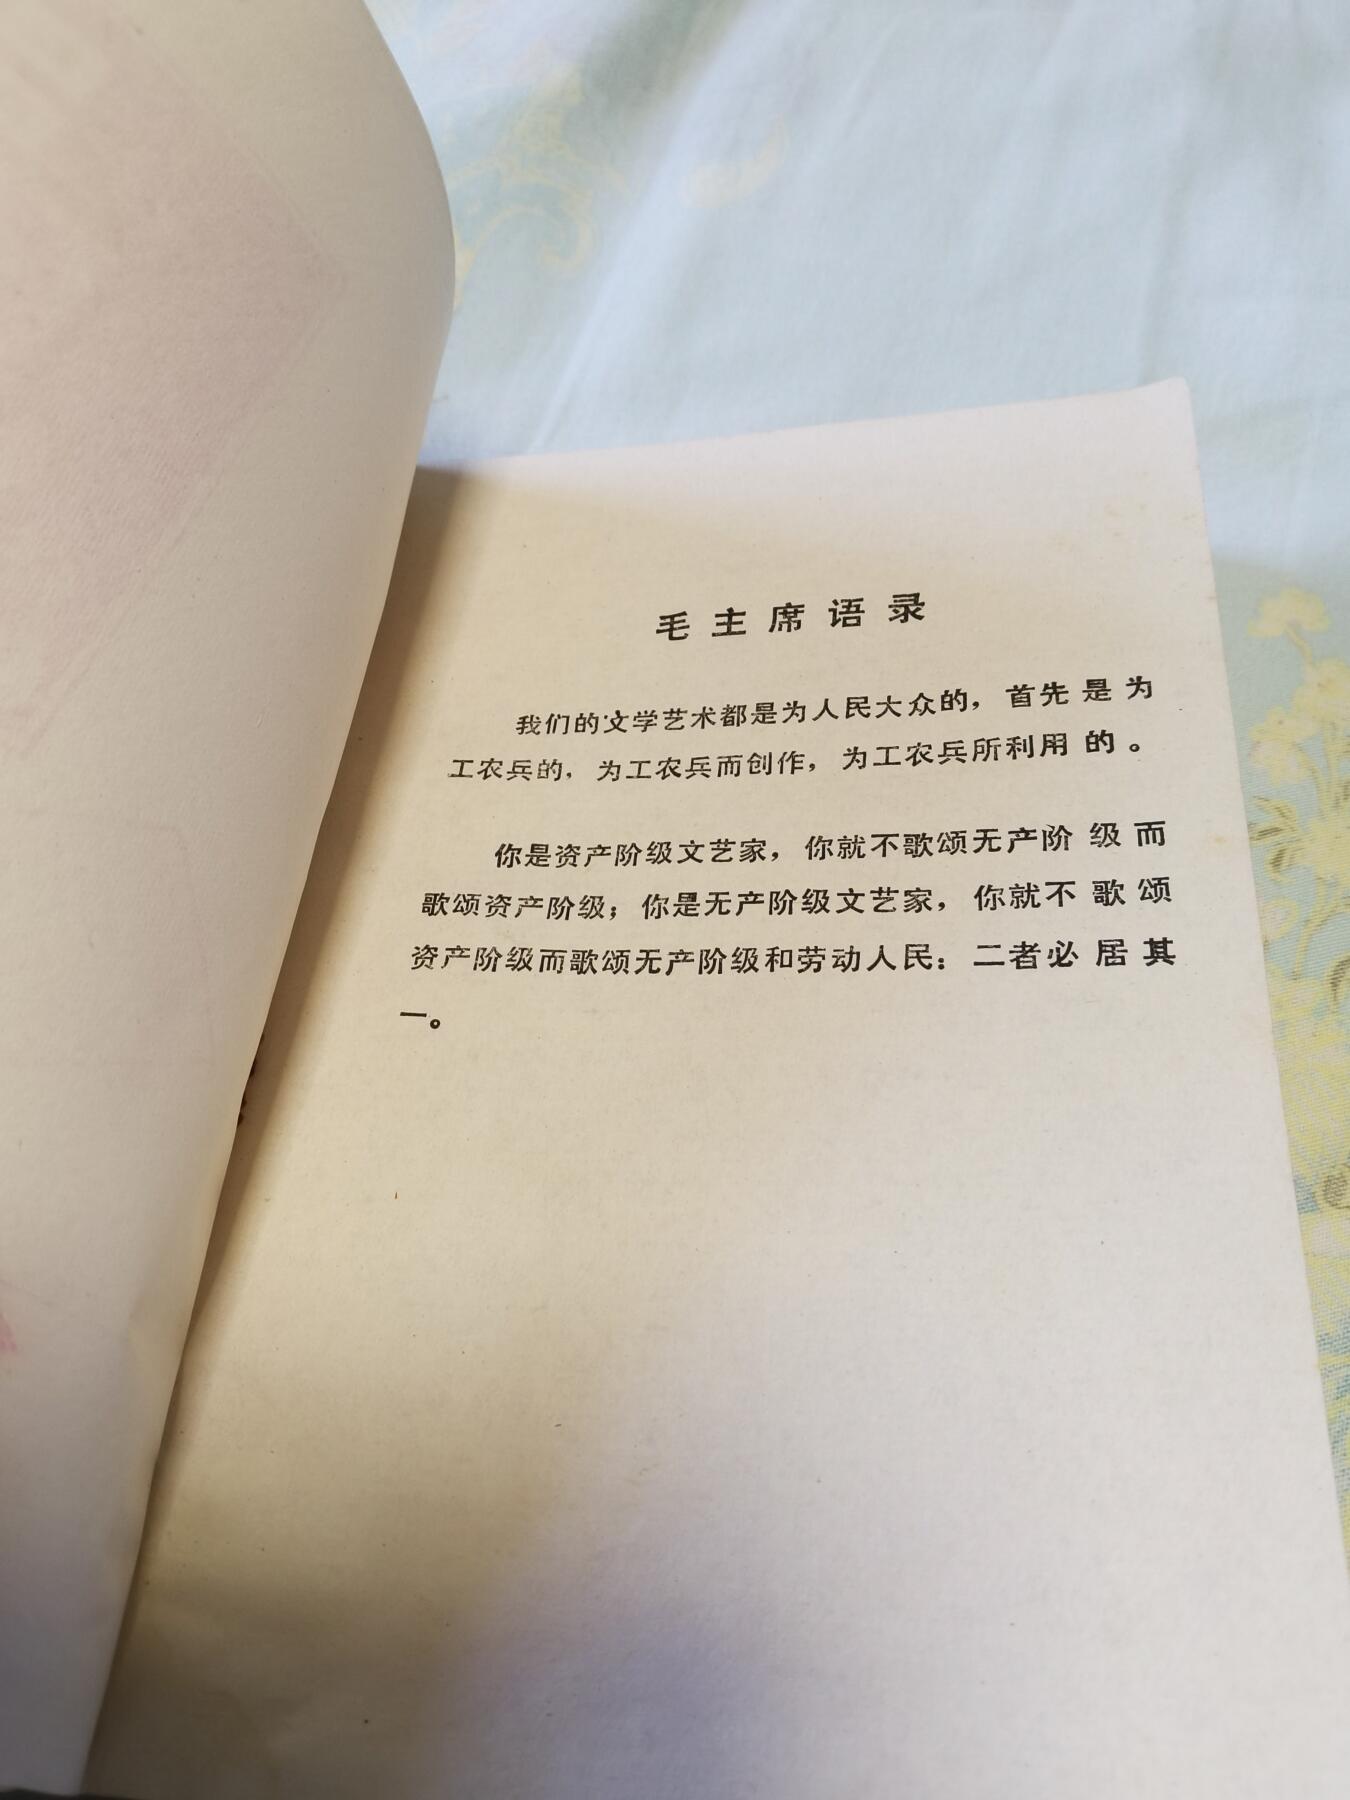 毛主席语录
我们的文学艺术都是为人民大众的，首先是为
工农兵的，为工农兵而创作，为工农兵所利用的。
你是资产阶级文艺家，你就不歌颂无产阶级而
歌颂资产阶级；你是无产阶级文艺家，你就不歌颂
资产阶级而歌颂无产阶级和劳动人民：二者必居其
一。